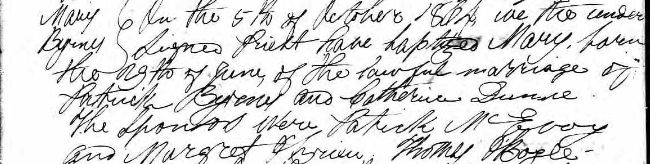 Mary { On the 5th of October 18 we the under
Byrnes { Signed Priest have baptized Mary, born
the 29th of June, of the lawful marriage of
Patrick Byrnes and Catherine Dunne
The Sponsors were Patrick McEvoy
and Margret O'Brien, Thomas